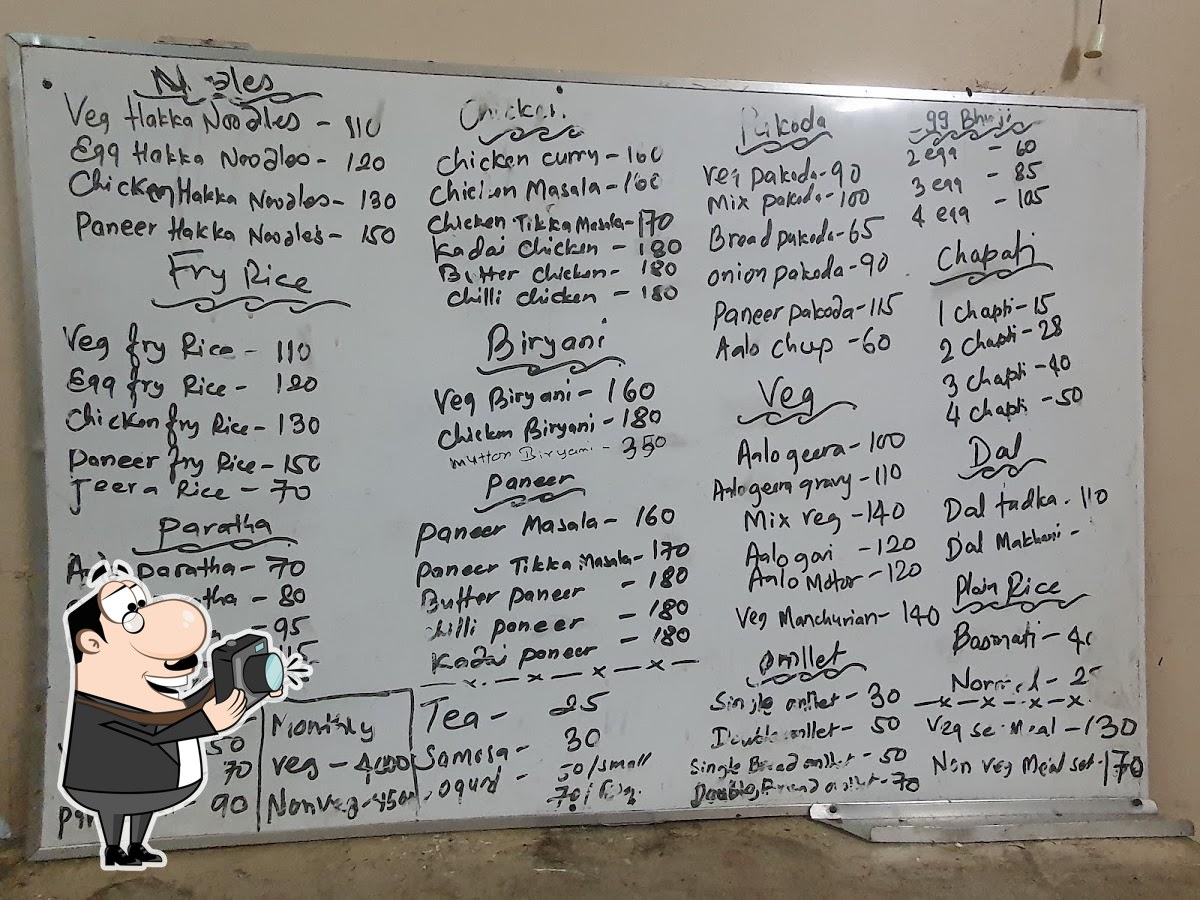 Veg Hakka Noodles - 110
Egg Hakka Noodles - 120
Chicken Hakka Noodles - 130
Paneer Hakka Noodles - 150
Fry Rice
Veg fry Rice - 110
Egg fry Rice - 120
Chicken fry Rice - 130
Paneer fry Rice - 150
Jeera Rice - 70
Paratha
paratha - 70
- 80
- 95
50
70
90
Monthly
Veg - 4000
Nonveg -
Chicken
Chicken curry - 160
Chicken Masala - 160
Chicken Tikka Masala - 170
Kadai Chicken - 180
Butter Chicken - 180
Chilli chicken - 180
Biryani
Veg Biryani - 160
Chicken Biryani - 180
Mutton Biryani - 350
Paneer
Paneer Masala - 160
Paneer Tikka Masala - 170
Butter paneer - 180
chilli paneer - 180
Kadai paneer - 180
-x-x-x-x-
Tea - 25
Samosa - 30
50/small
70/
Pakoda
Veg pakoda - 90
Mix pakoda - 100
Bread pakoda - 65
onion pakoda - 90
Paneer pakoda - 115
Aalo chup - 60
Veg
Aalo geera - 100
Aalo geera gravy - 110
Mix veg - 140
Aalo govi - 120
Aalo Motor - 120
Veg Manchurian - 140
omllet
Single omllet - 30
Double omllet - 50
Single Bread omllet - 50
Double Bread omllet - 70
gg Bhuji
2 egg - 60
3 egg - 85
4 egg - 105
Chapati
1 chapti - 15
2 chapti - 28
3 chapti - 40
4 chapti - 50
Dal
Dal tadka - 110
Dal Makhani -
Plain Rice
Basmati -
Normal -
-x-x-x-x-
Veg set Meal - 130
Non veg Meal set - 170